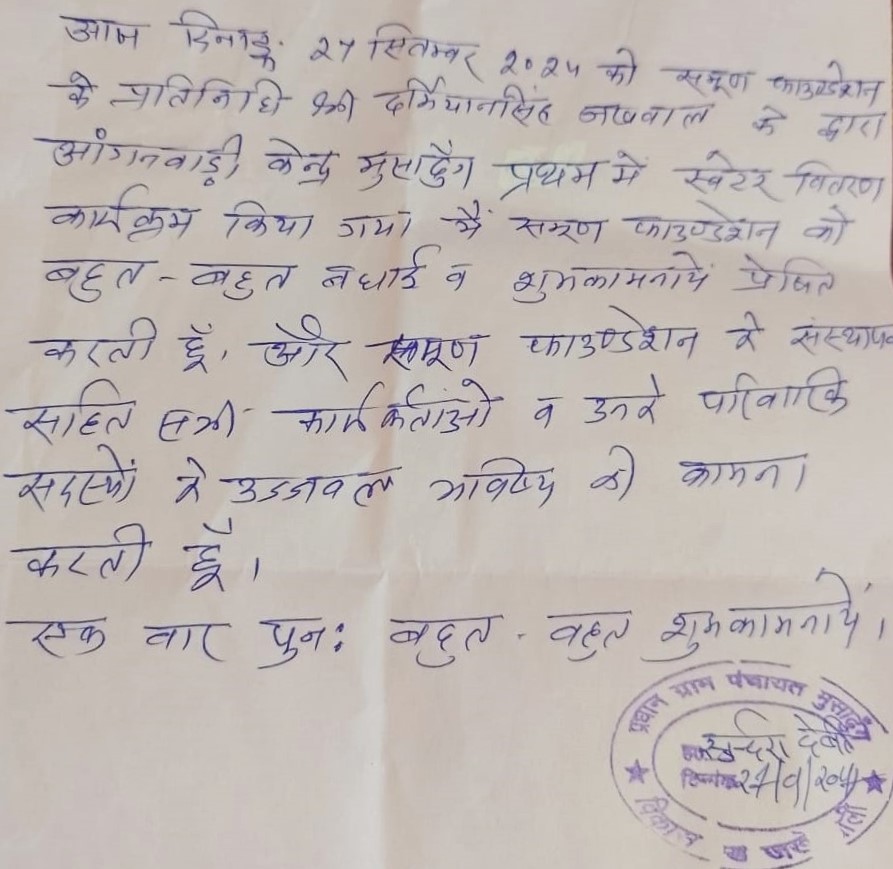 आज दिनाङ्क 27 सितम्बर 2024 को समूण फाउण्डेशन
के प्रतिनिधि श्री दर्मियानसिंह जखवाल के द्वारा
आंगनवाड़ी केन्द्र मुसाढुँग प्रथम में स्वेटर वितरण
कार्यक्रम किया गया मैं समूण फाउण्डेशन को
बहुत - बहुत बधाई व शुभकामनायें प्रेषित
करती हूँ, और समूण फाउण्डेशन के संस्थापक
सहित सभी कार्यकर्ताओं व उनके पारिवारिक
सदस्यों के उज्जवल भविष्य की कामना
करती हूँ।
एक वार पुनः बहुत - बहुत शुभकामनायें।
प्रधान ग्राम पंचायत मुसाढुंग
देवी
दिनांक 27/9/2024
विकास ख